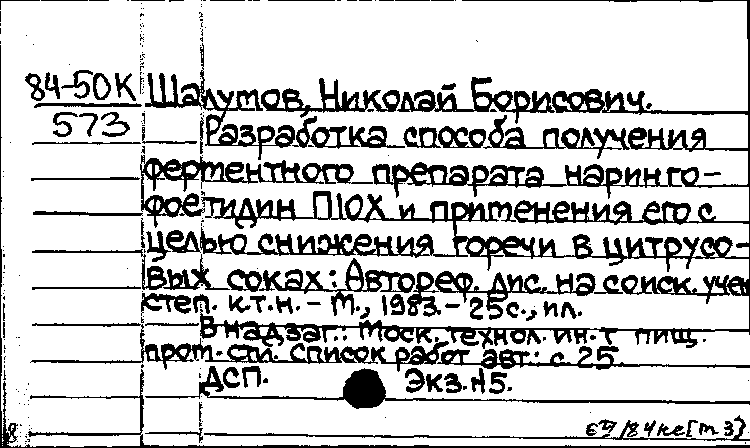 84-50К Шалутов, Николай Борисович.
573 Разработка способа получения
ферментного препарата наринго-
фоетидин П10Х и применения его с
целью снижения горечи в цитрусо-
вых соках: Автореф. дис. на соиск. учен
степ. к.т.н. - М., 1983. - 25с., ил.
В надзаг.: Моск. технол. ин-т пищ.
пром-сти. Список работ авт.: с. 25.
ДСП. Экз. №5.